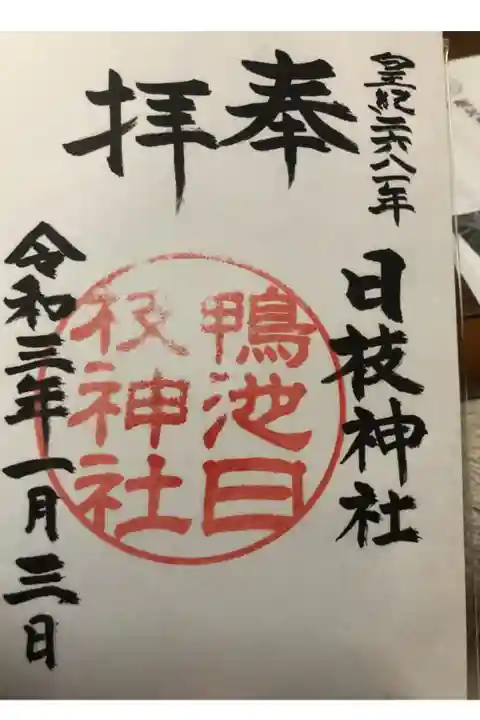 皇紀二六八一年
奉拝
日枝神社
鴨池日
枝神社
令和三年一月三日